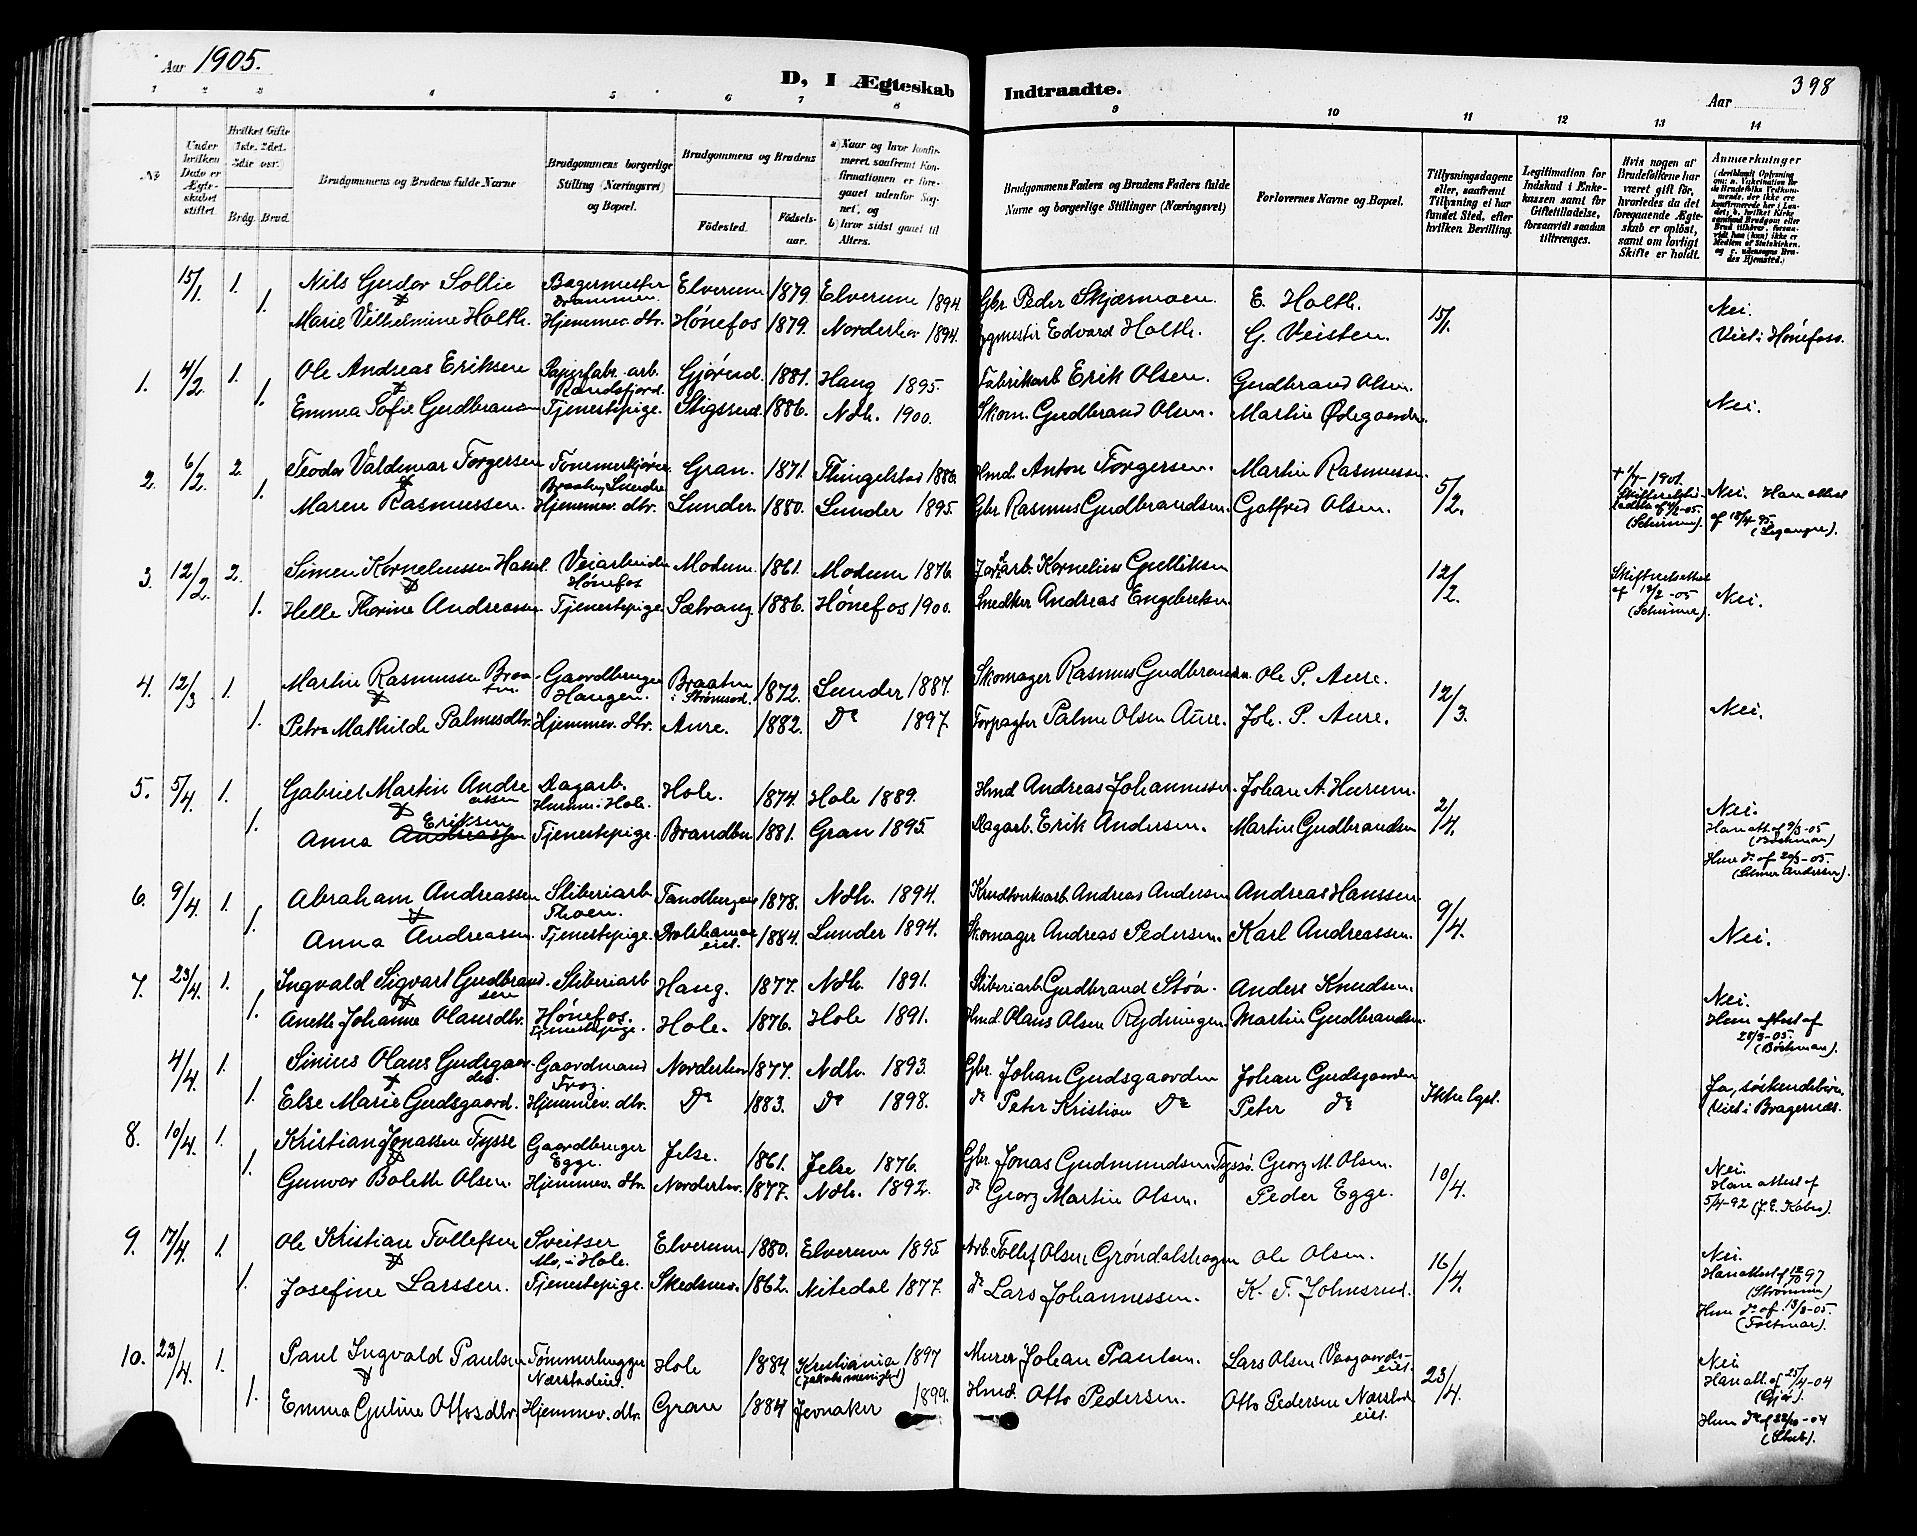 Aar 1905.
D, I Ægteskab Indtraadte.
398
Aar
1 2 3 4 5 6 7 8 9 10 11 12 13 14
No
Under hvilken Dato er Ægteskabet stiftet.
Hvilket Gifte 1ste. 2det. 3die osv.)
Brdg. Brud.
Brudgommens og Brudens fulde Navne
Brudgommens borgerlige Stilling (Næringsvei) og Bopæl.
Brudgommens og Brudens
Fødested.
Fødselsaar.
a) Naar og hvor konfirmeret, saafremt Konfirmationen er foregaaet udenfor Sognet, og
b) hvor sidst gaaet til Alters.
Brudgommens Faders og Brudens Faders fulde Navne og borgerlige Stillinger (Næringsvei)
Forlovernes Navne og Bopæl.
Tillysningsdagene eller, saafremt Tillysning ei har fundet Sted, efter hvilken Bevilling.
Legitimation for Indskud i Enkekassen samt for Giftetilladelse, forsaavidt saadan tiltrænges.
Hvis nogen af Brudefolkene har været gift før, hvorledes da det foregaaende Ægteskab er opløst, samt om lovligt Skifte er holdt.
Anmærkninger
15/1. 1. Nils Gudor Sollie Bagermester Drammen. Elverum 1879. Elverum 1894 Gbr Peder Skjærmoen. E. Holth. 15/1. Nei.
1. Marie Vilhelmine Holth. Hjemmev. dtr. Hønefos 1879. Norderhov 1894. Edvard Holth. G. Veisten. Viet i Hønefoss.
1. 4/2 1. Ole Andreas Eriksen Papirfabr. arb. Randsfjord. 1881. Haug 1895. Fabrikarb Erik Olsen. Gudbrand Olsen.
1. Emma Sofie Gudbransen Tjenestepige. 1886. Ndh. 1900. Skom. Gudbrand Olsen. Martin Ødegaarden. Nei.
2. 6/2. 2. Teodor Valdemar Torgersen Gran. 1871. Tingelstad 1886. Hmd. Anton Torgersen. Martin Rasmussen 5/2. 1901. Nei. Han attest
1. Maren Rasmussen. Hjemmev. dtr. Lunder. 1880. Lunder 1895. Gbr Rasmus Gudbrandsen. Gotfred Olsen. (Schirmer). af 18/4-95.
3. 12/2. 2. Simen Kornelnussen Hassel. Veiarbeider Hønefos Modum. 1861. Modum 1876. Kornelius Gulliksen 12/2. Skifteattest af 12/2-05 (Schirmer). Nei.
1. Helle Thorine Andreassen. Tjenestepige Sætrang. 1886. Hønefos 1900. Snedker Andreas Engebretsen.
4. 12/3 1. Martin Rasmussen Braaten. Gaardbruger Haugen. Braaten i Strømsod. 1872. Lunder 1887. Skomager Rasmus Gudbrandsen. Ole P. Aure. 12/3. Nei.
1. Petra Mathilde Palmesdtr. Hjemmev. dtr. Aure. 1882. Do 1897. Forpagter Palme Olsen Aure. Joh. P. Aure.
5. 5/4. 1. Gabriel Martin Andreassen Dagarb. Hurum i Hole. Hole. 1874. Hole 1889. Hmd Andreas Johannessen Johan A. Hurum. 2/4. Nei.
1. Anna Andreassen Eriksen Tjenestepige. Brandbu 1881. Gran 1895. Dagarb. Erik Andersen. Martin Gudbrandsen Han att. af 9/3-05 (Bøckman) Hun do af 20/3-05. (Andersen).
6. 9/4. 1. Abraham Andreassen Sliberiarb. Tandbergeie 1878. Ndh. 1894. Andreas Andersen Andreas Hanssen. 9/4. Nei.
1. Anna Andreassen. Tjenestepige. 1884. Lunder 1894. Skomager Andreas Pedersen. Karl Andreassen.
7. 23/4. 1. Ingvald Sigvart Gudbrandsen Sliberiarb Hønefos. Haug. 1877. Ndh. 1891. Sliberiarb. Gudbrand Støa. Anders Knudsen. Nei.
1. Anette Johanne Olausdtr. Tjenestepige. Hole. 1876. Hole 1891. Hmd. Olaus Olsen Rydningen. Martin Gudbrandsen. Hun attest af 28/3-05. (Bøckman).
4/4. 1. Sinius Olaus Gudsgaarden. Gaardmand Norderhov 1877. Ndh. 1893. Gbr. Johan Gudsgaarden Johan Gudsgaarden Ikke lyst. Ja, søskendebørn.
1. Else Marie Gudsgaard. Hjemmev. dtr. Do 1883. Do 1898. do Peter Kristian Do Peter do Viet i Bragernæs.
8. 10/4. 1. Kristian Jonassen Tysse Gaardbruger Egge. Jelse. 1861. Jelse 1876. Gbr. Jonas Gudmundsen Tyssø. Georg M. Olsen. 10/4. Nei.
1. Gunvor Bolette Olsen. Hjemmev. dtr. Norderhov. 1877. Ndh. 1892. do Georg Martin Olsen. Peder Egge. Han attest af 5/4-92
9. 17/4. 1. Ole Kristian Tollefsen Sveitser Mo, i Hole. Elverum 1880. Elverum 1895 Arb. Tollef Olsen Grøndalshagen Ole Olsen. 16/4. Nei.
1. Josefine Larssen. Tjenestepige. Skedsmo. 1862. Nitedal 1877. do Lars Johannessen. K. T. Johnsrud. Han attest af 12/10 97 (Strømme) Hun do af 13/3-05. (Foltmar).
10. 23/4. 1. Paul Ingvald Paulsen Tømmerhugger Næsstadeiet. Hole 1884. Kristiania 1897 (Jakobs menighed) Murer Johan Paulsen. Lars Olsen Vaagaardseiet. 23/4. Nei
1. Emma Guline Ottosdtr. Hjemmev. dtr. Gran 1884 Jevnaker 1899. Hmd. Otto Pedersen. Otto Pedersen Næsstadeiet. Han att. af 25/4-04 Hun do af 22/10-04